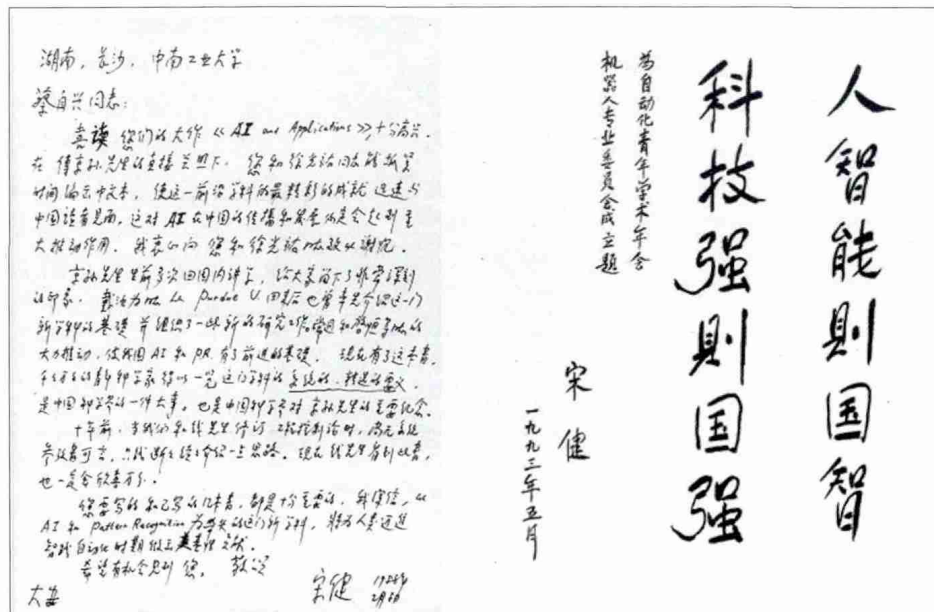 湖南,长沙,中南工业大学
蔡自兴同志:
喜读您们的大作《AI and Applications》,十分高兴。
在傅京孙先生的直接关照下,您和徐光祐同志能抓紧
时间编出中文本,使这一前沿学科的最精彩的成就迅速与
中国读者见面,这对AI在中国的传播和发展必定会起到重
大推动作用。我衷心向您和徐光祐同志致以谢忱。
京孙先生生前多次回国内讲学,给大家留下了非常深刻
的印象。 Purdue U. 回后也曾介绍这一门
新学科的基础并组织了一些新的研究工作。
大力推动,使我国AI和PR有了前进的基础。现在有了这本书,
这门学科的系统的,精选的要义,
是中国科学界的一件大事。也是中国科学界对京孙先生的重要纪念。
十年前,当我们和钱先生修订工程控制论时,
介绍一点思路。现在钱先生看到此书,
也一定会欣喜万分。
您要写的和已写的几本书,都是十分重要的。我深信,以
AI和Pattern Recognition为带头的这门新学科,将为人类迈进
智能自动化时期做出基性贡献。
希望有机会见到您。敬颂
大安
宋健
人智能则国智
科技强则国强
为自动化青年学术年会
机器人专业委员会成立题
宋健
一九九三年五月